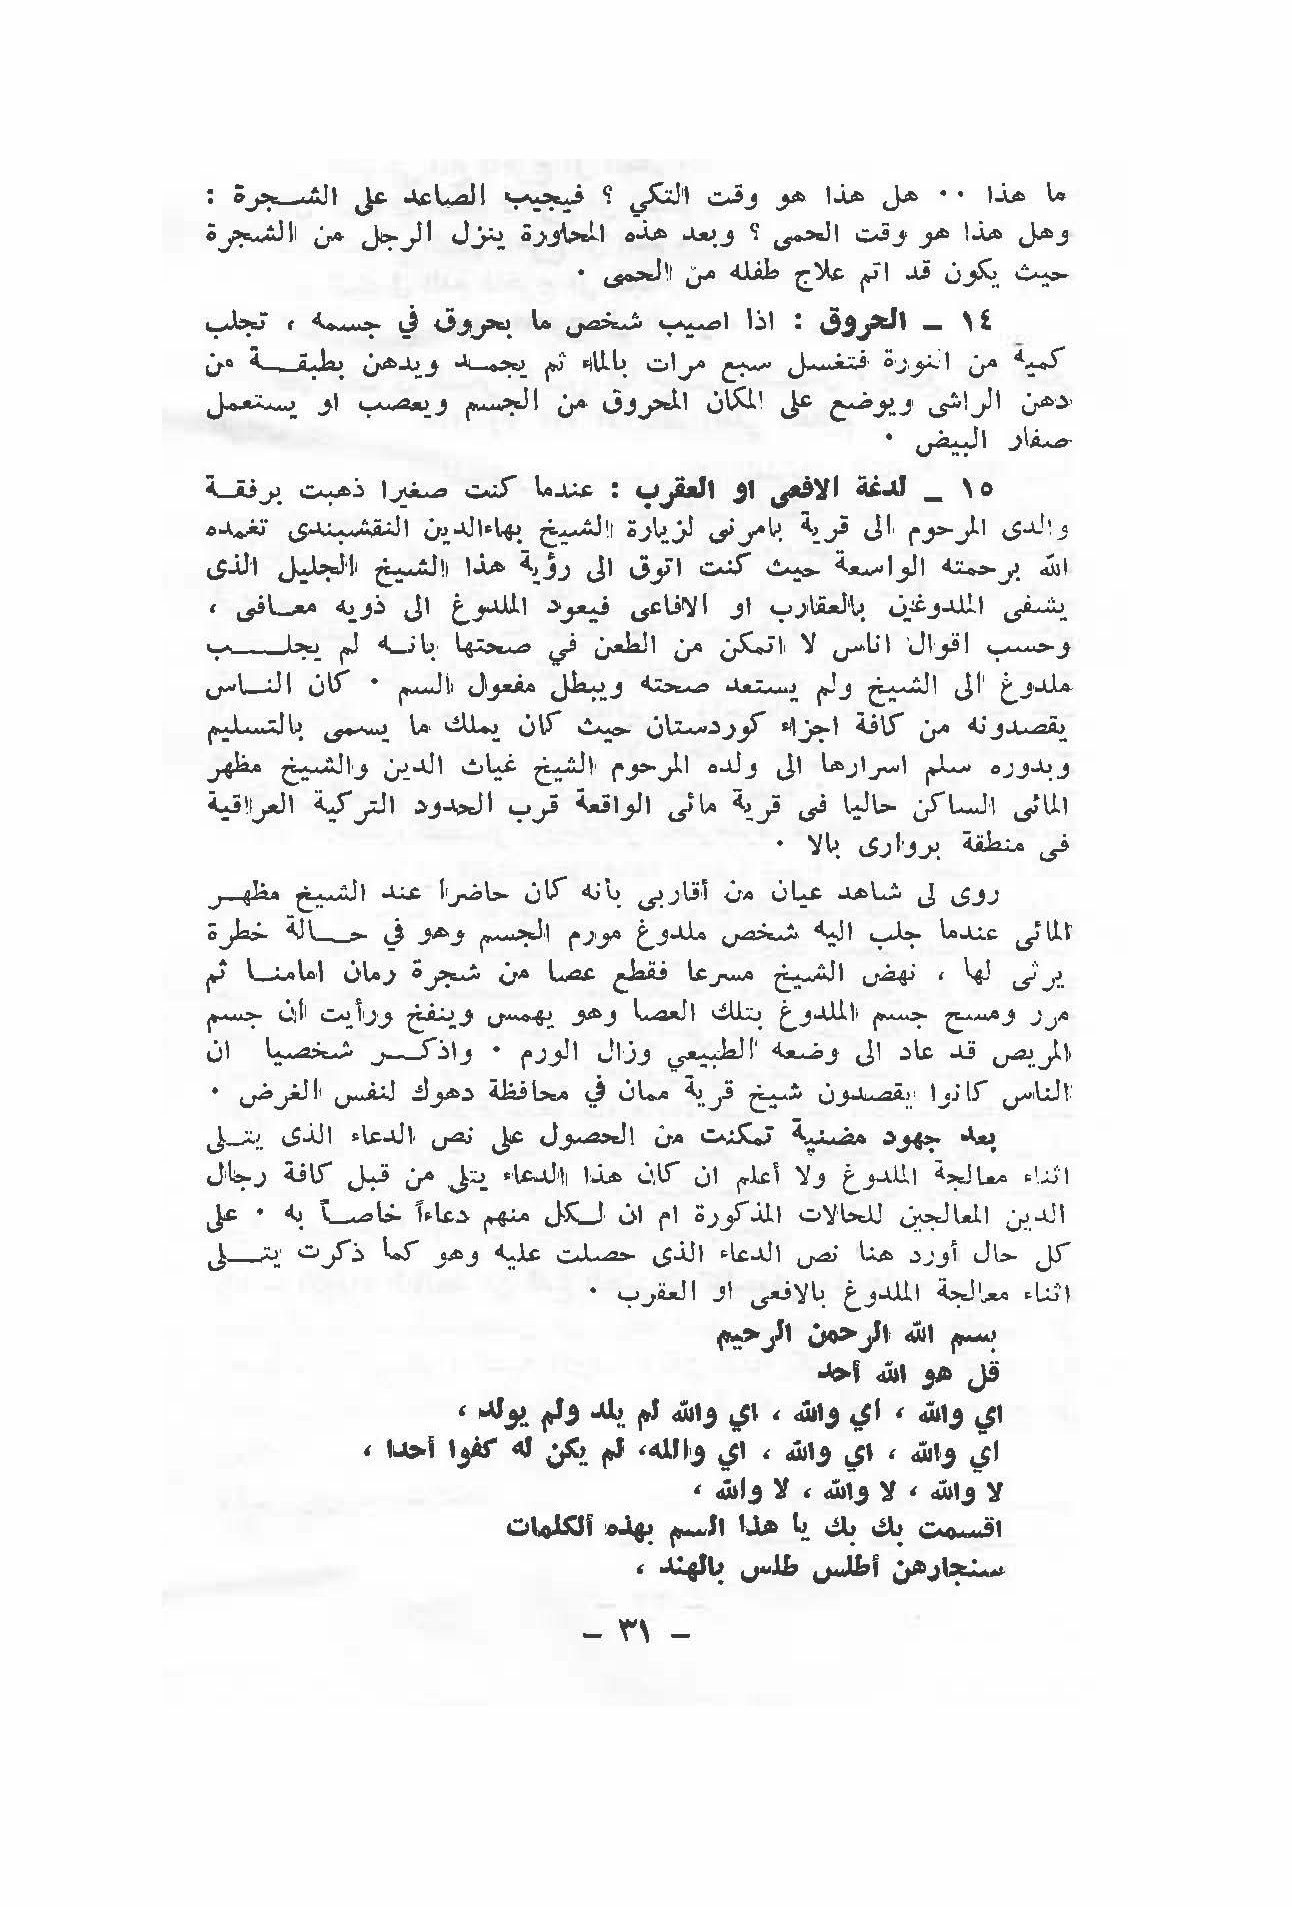 ما هذا ٠٠ هل هذا هو وقت التكي ؟ فيجيب الصاعد على الشجرة :
وهل هذا هو وقت الحمى ؟ وبعد هذه المحاورة ينزل الرجل من الشجرة
حيث يكون قد اتم علاج طفله من الحمى ٠
١٤ ـ الحروق : اذا اصيب شخص ما بحروق في جسمه ، تجلب
كمية من النورة فتغسل سبع مرات بالماء ثم يجمد ويدهن بطبقة من
دهن الراشى ويوضع على المكان المحروق من الجسم ويعصب او يستعمل
صفار البيض ٠
١٥ ـ لدغة الافعى او العقرب : عندما كنت صغيرا ذهبت برفقة
والدى المرحوم الى قرية بامرنى لزيارة الشيخ بهاءالدين النقشبندى تغمده
الله برحمته الواسعة حيث كنت اتوق الى رؤية هذا الشيخ الجليل الذى
يشفى الملدوغين بالعقارب او الافاعى فيعود الملدوغ الى ذويه معافى ،
وحسب اقوال اناس لا اتمكن من الطعن في صحتها بانه لم يجلب
ملدوغ الى الشيخ ولم يستعد صحته ويبطل مفعول السم ٠ كان الناس
يقصدونه من كافة اجزاء كوردستان حيث كان يملك ما يسمى بالتسليم
وبدوره سلم اسرارها الى ولده المرحوم الشيخ غياث الدين والشيخ مظهر
المائى الساكن حاليا فى قرية مائى الواقعة قرب الحدود التركية العراقية
فى منطقة بروارى بالا ٠
روى لى شاهد عيان من أقاربي بأنه كان حاضرا عند الشيخ مظهر
المائى عندما جلب اليه شخص ملدوغ مورم الجسم وهو في حالة خطرة
يرثى لها ، نهض الشيخ مسرعا فقطع عصا من شجرة رمان امامنا ثم
مرر ومسح جسم الملدوغ بتلك العصا وهو يهمس وينفخ ورأيت ان جسم
المريض قد عاد الى وضعه الطبيعي وزال الورم ٠ واذكر شخصيا ان
الناس كانوا يقصدون شيخ قرية ممان في محافظة دهوك لنفس الغرض ٠
بعد جهود مضنية تمكنت من الحصول على نص الدعاء الذى يتلى
اثناء معالجة الملدوغ ولا أعلم ان كان هذا الدعاء يتلى من قبل كافة رجال
الدين المعالجين للحالات المذكورة ام ان لكل منهم دعاءاً خاصاً به ٠ على
كل حال أورد هنا نص الدعاء الذى حصلت عليه وهو كما ذكرت يتلى
اثناء معالجة الملدوغ بالافعى او العقرب ٠
بسم الله الرحمن الرحيم
قل هو الله أحد
اي والله ، أي والله ، اي والله لم يلد ولم يولد ،
اي والله ، اي والله ، اي والله، لم يكن له كفوا أحدا ،
لا والله ، لا والله ، لا والله ،
اقسمت بك بك يا هذا السم بهذه ألكلمات
سنجارهن أطلس طلس بالهند ،
ـ ٣١ ـ